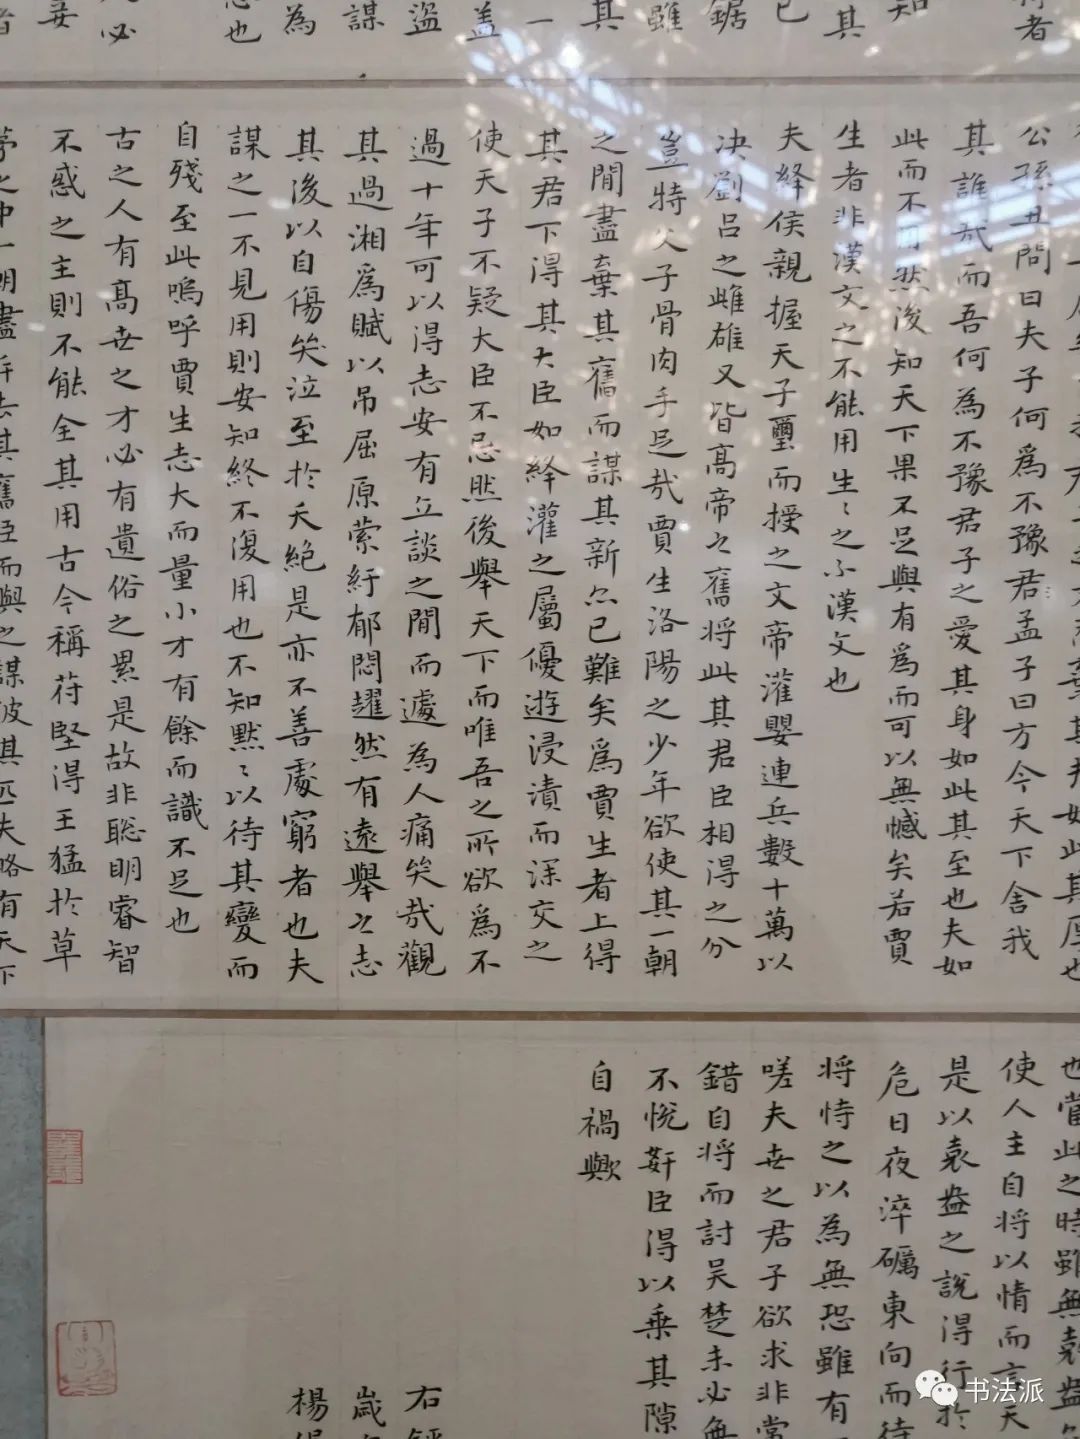 者
知
其
已
鋸
雖
其
一
蓋
盜
謀
為
也
必
妄
其厚也
公孫丑問曰夫子何爲不豫君孟子曰方今天下舍我
其誰哉而吾何為不豫君子之愛其身如此其至也夫如
此而不用然後知天下果不足與有爲而可以無憾矣若賈
生者非漢文之不能用生〻之不漢文也
夫絳侯親握天子璽而授之文帝灌嬰連兵數十萬以
決劉呂之雌雄又皆高帝之舊將此其君臣相得之分
豈特父子骨肉手足哉賈生洛陽之少年欲使其一朝
之閒盡棄其舊而謀其新亦已難矣爲賈生者上得
其君下得其大臣如絳灌之屬優遊浸漬而深交之
使天子不疑大臣不忌然後舉天下而唯吾之所欲爲不
過十年可以得志安有立談之閒而遽為人痛哭哉觀
其過湘爲賦以吊屈原縈紆郁悶趯然有遠舉之志
其後以自傷哭泣至於夭絕是亦不善處窮者也夫
謀之一不見用則安知終不復用也不知默〻以待其變而
自殘至此嗚呼賈生志大而量小才有餘而識不足也
古之人有高世之才必有遺俗之累是故非聰明睿智
不惑之主則不能全其用古今稱苻堅得王猛於草
茅之中一朝盡斥去其舊臣而與之謀彼其匹夫略有天下
也當此之時雖無袁盎
使人主自將以情而言天
是以袁盎之說得行於
危日夜淬礪東向而待
將恃之以為無恐雖有
嗟夫世之君子欲求非常
錯自將而討吳楚未必無
不悅奸臣得以乘其隙
自禍歟
右
歲
楊
书法派